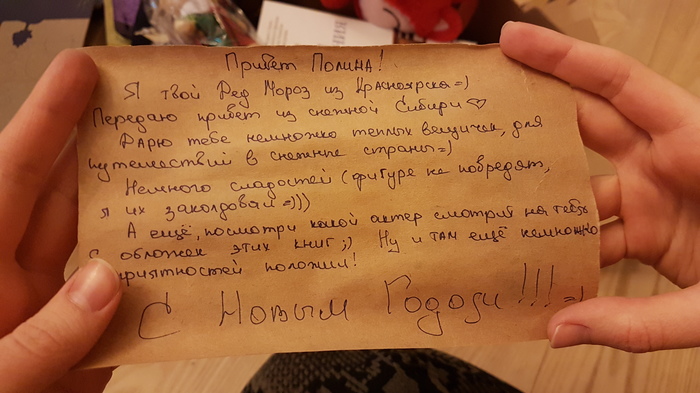 Привет Полина!
Я твой Дед Мороз из Красноярска=)
Передаю привет из снежной Сибири♡
Дарю тебе немножко теплых вещичек, для
путешествий в снежные страны=)
Немного сладостей (фигуре не повредят,
я их заколдовал=)))
А ещё, посмотри какой актер смотрит на тебя
с обложек этих книг;) Ну и там ещё немножко
приятностей положил!
С Новым Годом!!! =)